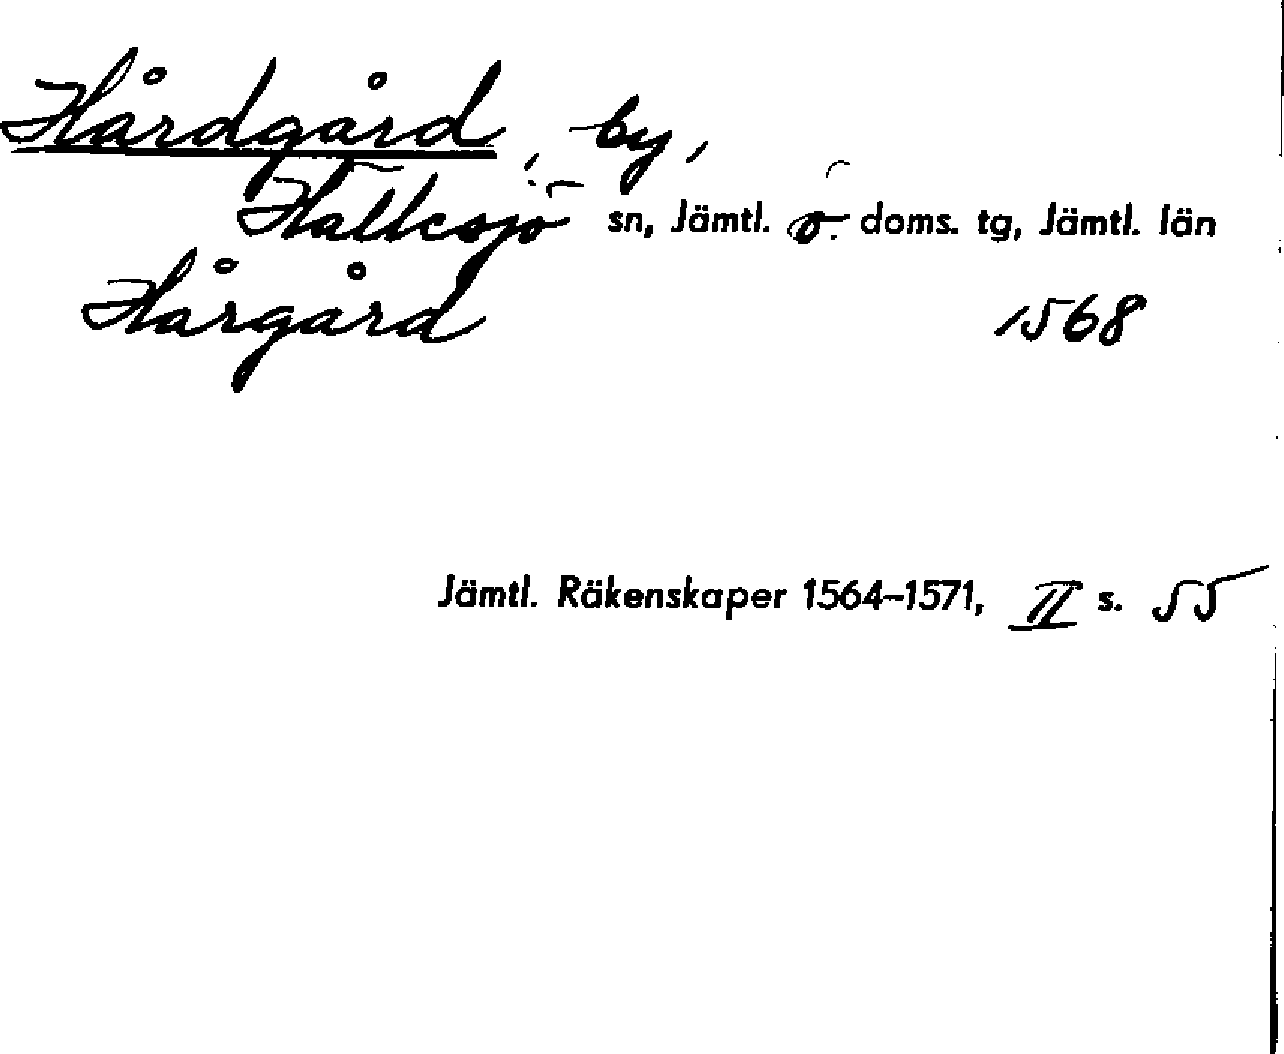 Hårdgård, by,
Hällesjö sn, Jämtl. ö. doms. tg, Jämtl. län
Hårgård 1568
Jämtl. Räkenskaper 1564–1571, II s. 55